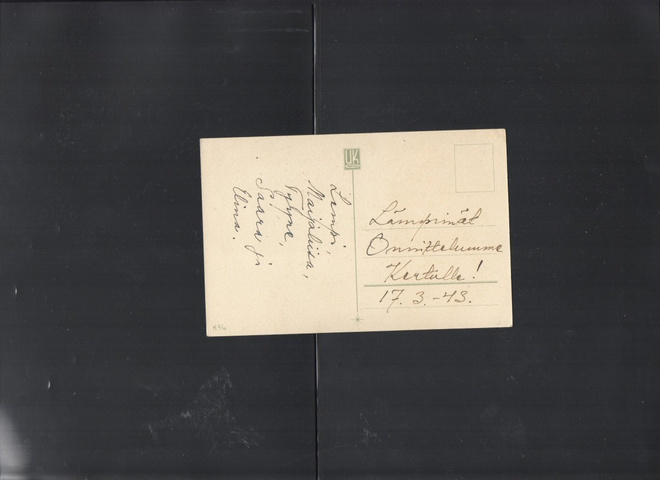 Lempi,
Maijaliisa,
Tyyne,
Saara ja
Elina.
UK
Lämpimät
Onnittelumme
Kertulle!
17. 3. -43.